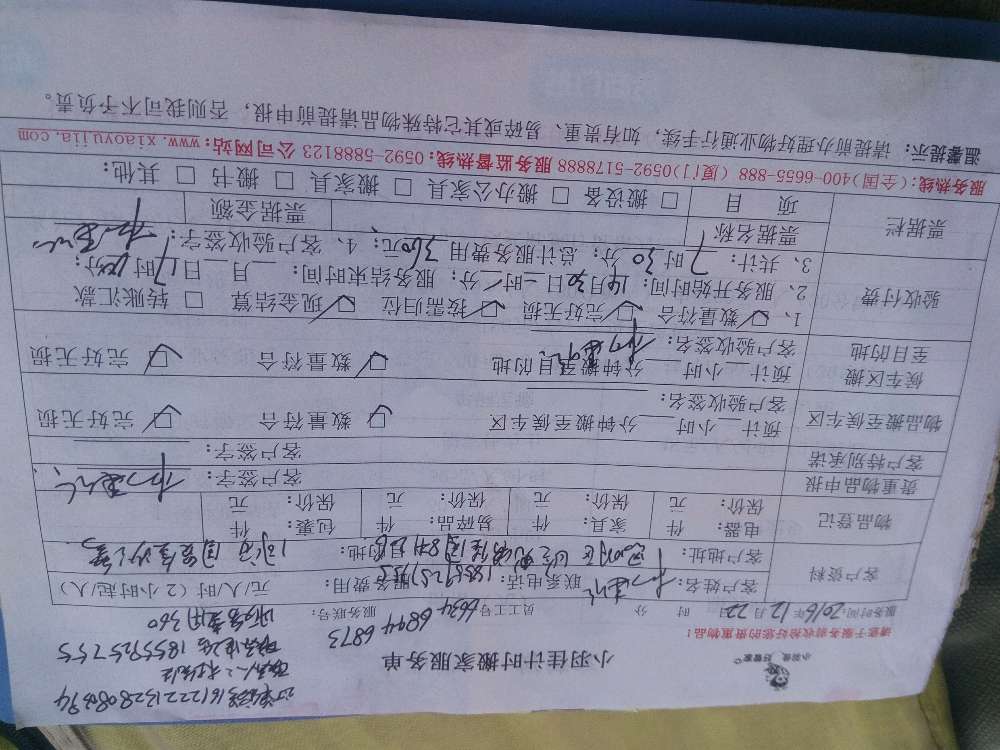 小羽佳 好管家
小羽佳计时搬家服务单
订单编号16122213280808394
服务费用360
请于服务验收前拾好您的贵重物品!
服务时间: 2016年12月22日 时 分 员工号 6634 6844 6873 服务联号:
客户资料
客户姓名: 联系电话: 服务费用: 元/人/时(2小时起/人)
客户地址: 目的地:
物品登记
电器: 件 家具: 件 易碎品: 件 包裹: 件
保价: 元 保价: 元 保价: 元 保价: 元
贵重物品申报 客户签字:
客户特别承诺 客户签字:
物品搬至候车区
预计 小时 分钟搬至候车区 数量符合 完好无损
客户验收签名:
候车区搬至目的地
预计 小时 分钟搬至目的地 数量符合 完好无损
客户验收签名:
验收付费
1、 数量符合 完好无损 按需归位 现金结算 转账汇款
2、服务开始时间: 月 日 时 分; 服务结束时间: 月 日17时 分;
3、共计: 7时30分; 总计服务费用360元; 4、客户验收签字:
票据栏 票据名称 票据金额
项目 搬设备 搬办公家具 搬家具 搬书 其他:
服务热线:(全国)400-6655-888 (厦门)0592-5178888 服务监督热线:0592-5888123 公司网站:www.xiaoyujia.com
温馨提示: 请提前办理好物业通行手续,如有贵重、易碎或其它特殊物品请提前申报,否则我司不予负责。